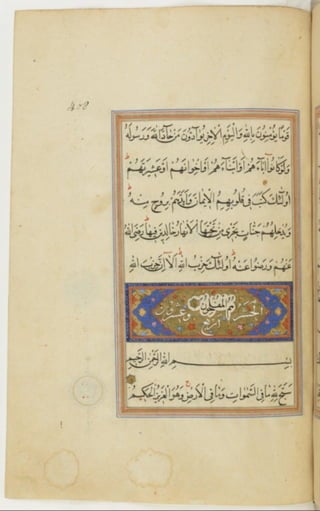 قوما يؤمنون بالله واليوم الآخر يوادون من حاد الله ورسوله
ولو كانوا آباءهم أو أبناءهم أو إخوانهم أو عشيرتهم
أولئك كتب في قلوبهم الإيمان وأيدهم بروح منه
ويدخلهم جنات تجري من تحتها الأنهار خالدين فيها رضي الله
عنهم ورضوا عنه أولئك حزب الله ألا إن حزب الله
هم المفلحون
الحشر أربع وعشرون
بسم الله الرحمن الرحيم
سبح لله ما في السموات وما في الأرض وهو العزيز الحكيم